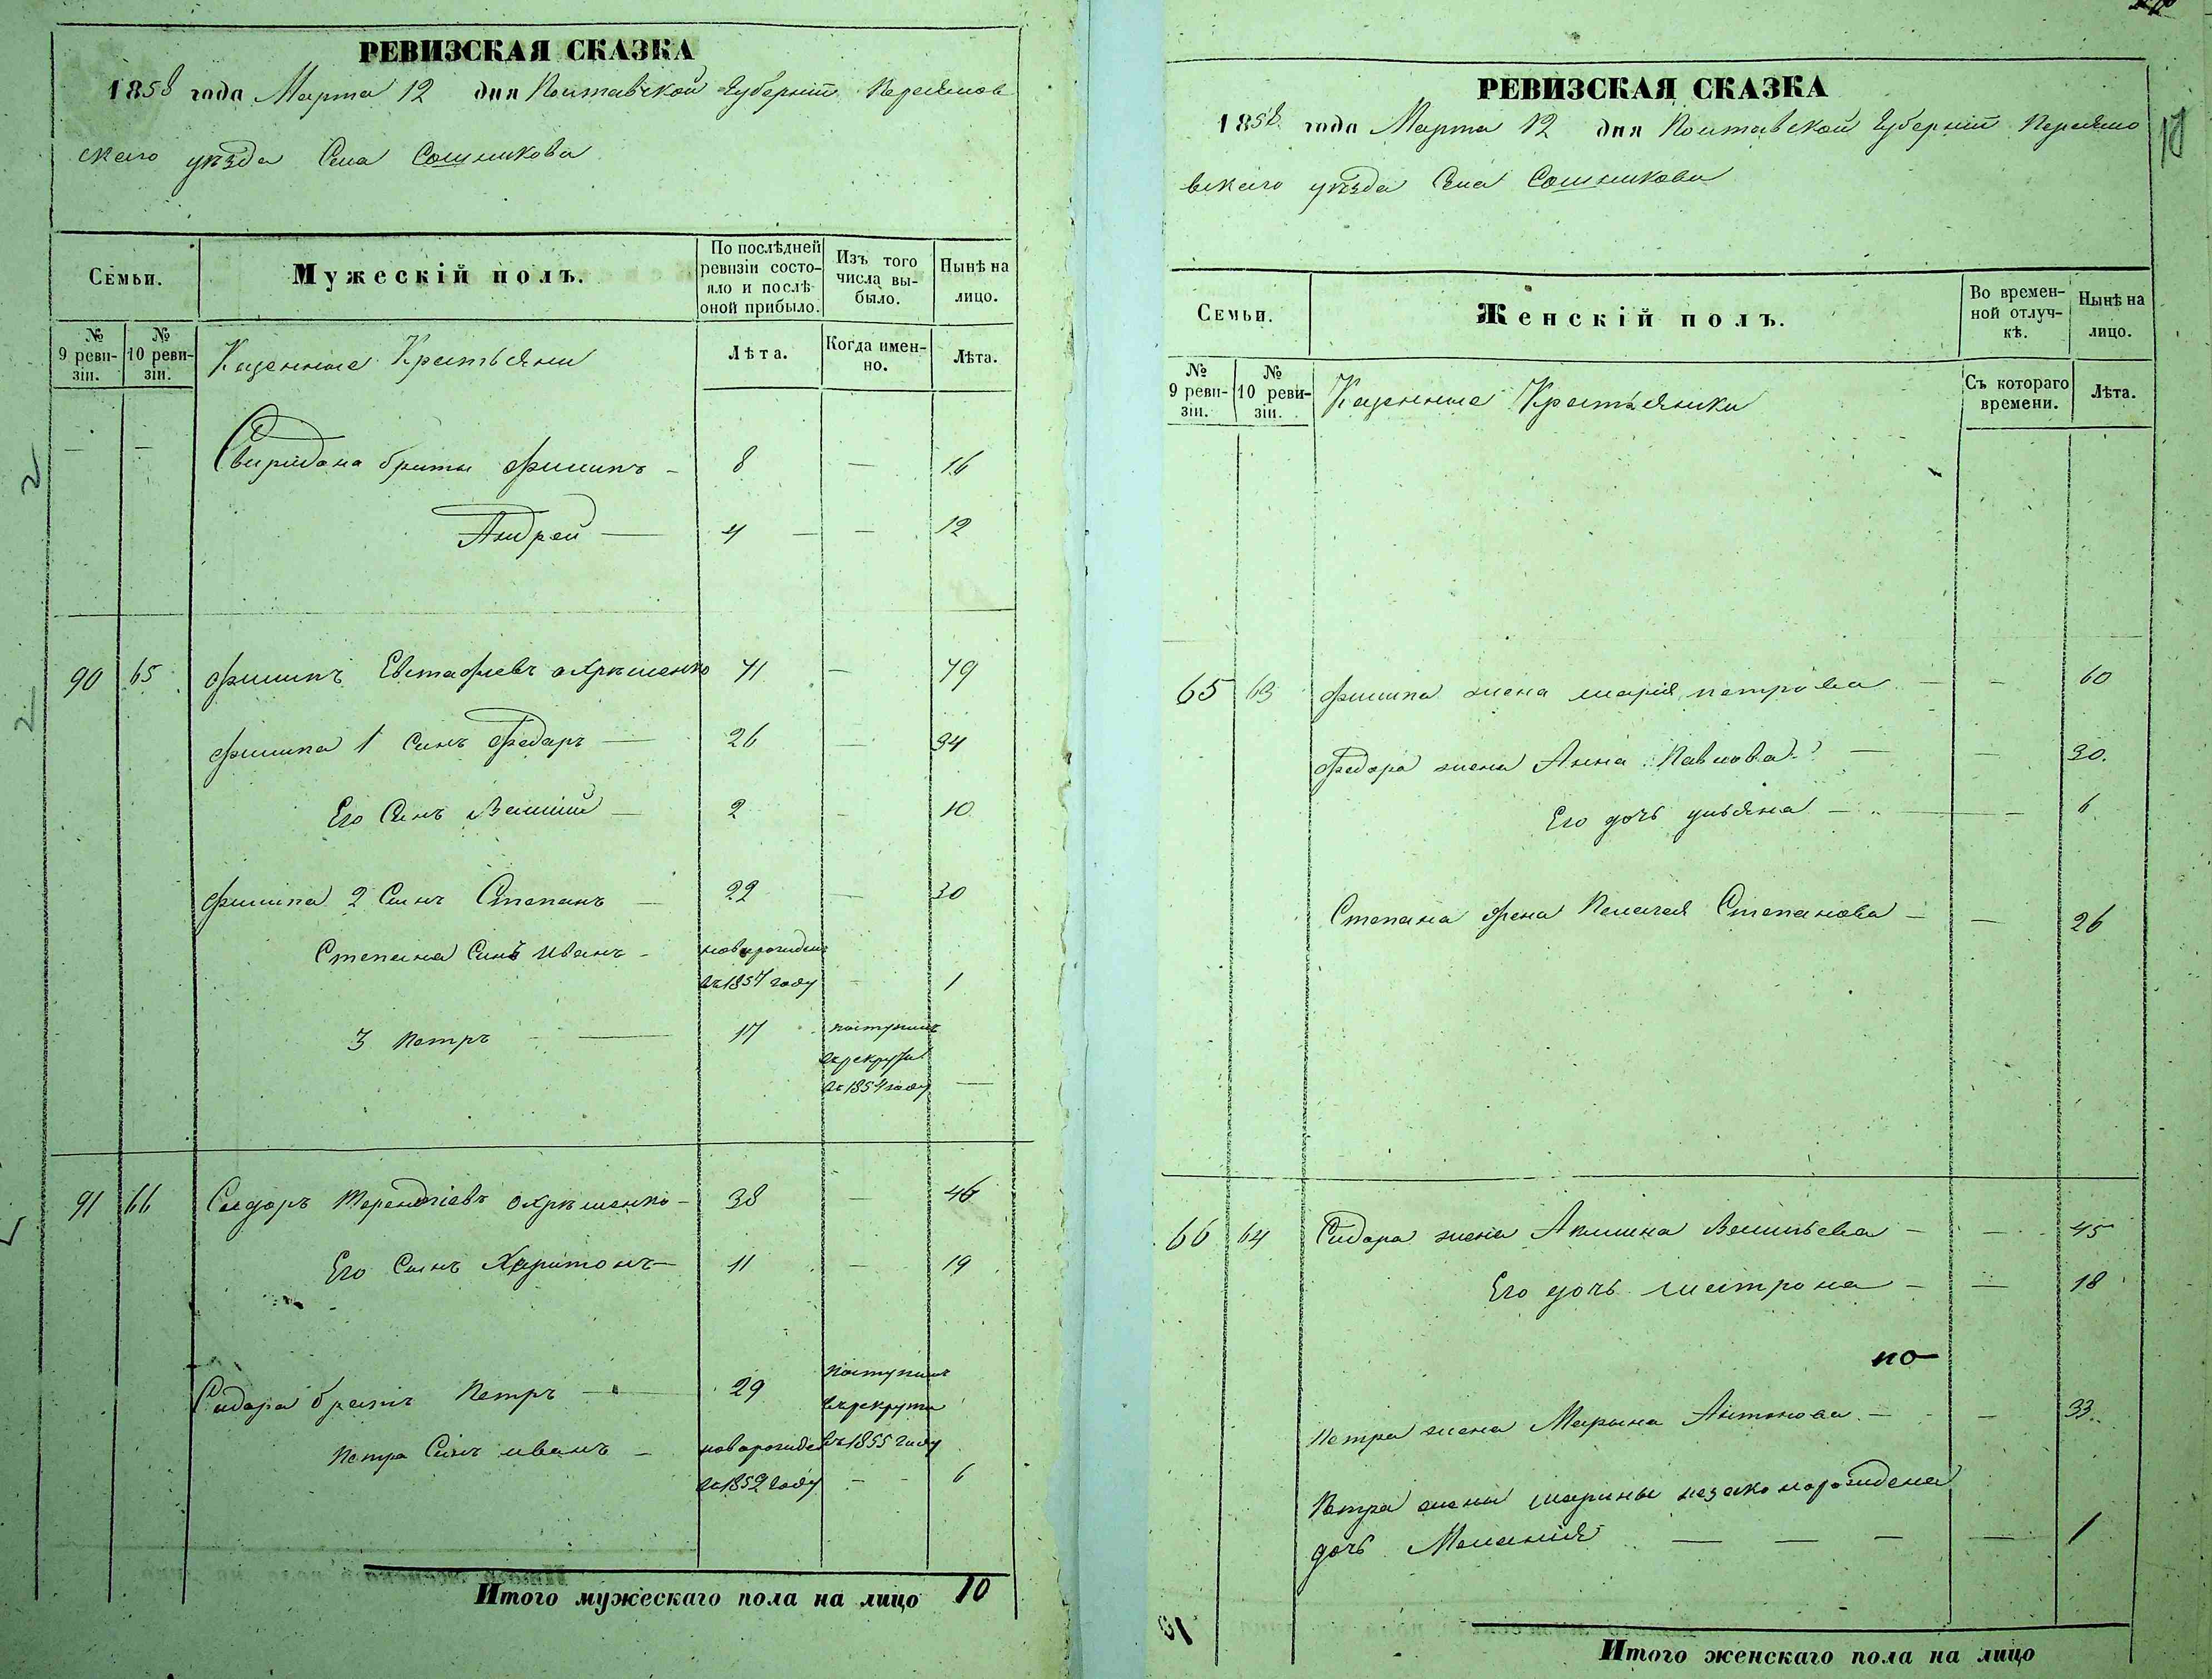 РЕВИЗСКАЯ СКАЗКА
1858 года Марта 12 дня Полтавской Губерніи Переяслов
скаго уѣзда Села Сошникова
Семьи.
Мужескій полъ.
По послѣдней ревизіи состо-
яло и послѣ
оной прибыло.
Изъ того
числа вы-
было.
Нынѣ на
лицо.
№
9 реви-
зіи.
№
10 реви-
зіи.
Казенные Крестьяни
Лѣта.
Когда имен-
но.
Лѣта.
— — Свиридона браты Филипъ — 8 — 16
Андрей — 4 — — 12
90 65 Филипъ Евстафіевъ Охрѣменко 71 — 79
Филипа 1 Синъ Федаръ — 26 — 34
Его Синъ Василій — 2 — 10
Филипа 2 Синъ Степанъ — 22 — 30
Степана Синъ Иванъ — новорожденъ
въ 1857 году — 1
3 Петръ — 17 поступилъ
въ рекруты
въ 1854 году —
91 66 Сидоръ Терентіевъ Охрѣменко — 38 — 46
Его Синъ Харитонъ — 11 — 19
Сидора братъ Петръ — 29 Поступилъ
въ рекруты
въ 1855 году
Петра Синъ Иванъ — новорожден
въ 1852 году — 6
Итого мужескаго пола на лицо 10
РЕВИЗСКАЯ СКАЗКА
1858 года Марта 12 дня Полтавской Губерніи Переясло
вскаго уѣзда Села Сошникова
Семьи.
Женскій полъ.
Во времен-
ной отлуч-
кѣ.
Нынѣ на
лицо.
№
9 реви-
зіи.
№
10 реви-
зіи.
Казенные Крестьянки
Съ котораго
времени.
Лѣта.
65 63 Филипа жена Марія Петрова — — 60
Федора жена Анна Павлова — — 30.
Его дочь Ульяна — — 6
Степана жена Пелагея Степанова — — 26
66 64 Сидора жена Акилина Васильева — — 45
Его дочь Матрона — — 18
но
Петра жена Марына Антонова — — 33.
Петра жены Марины незаконорождена
дочь Меланія — — — — 1
Итого женскаго пола на лицо